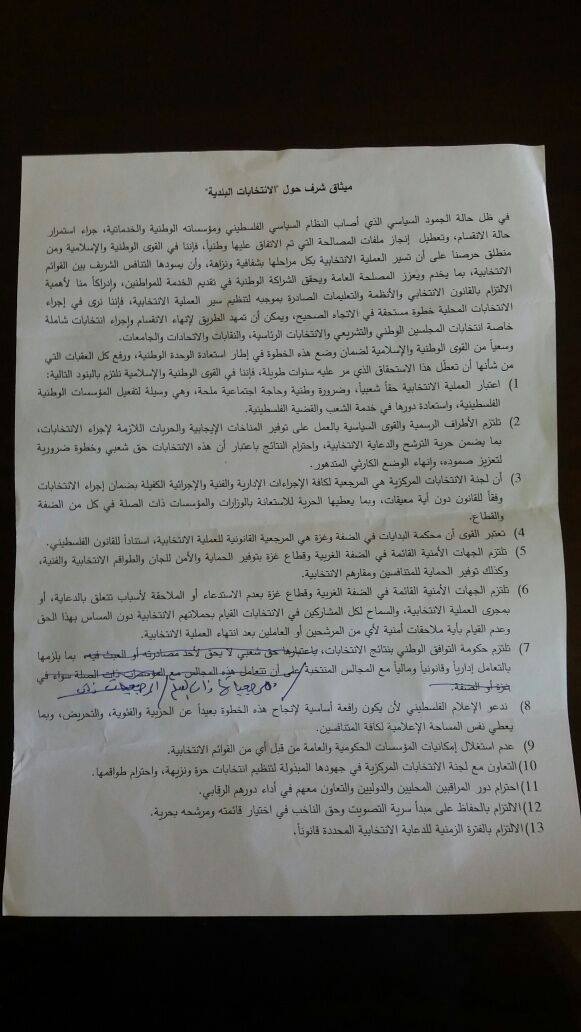 ميثاق شرف حول "الانتخابات البلدية"
في ظل حالة الجمود السياسي الذي أصاب النظام السياسي الفلسطيني ومؤسساته الوطنية والخدماتية، جراء استمرار
حالة الانقسام، وتعطيل إنجاز ملفات المصالحة التي تم الاتفاق عليها وطنياً، فإننا في القوى الوطنية والإسلامية ومن
منطلق حرصنا على أن تسير العملية الانتخابية بكل مراحلها بشفافية ونزاهة، وأن يسودها التنافس الشريف بين القوائم
الانتخابية، بما يخدم ويعزز المصلحة العامة ويحقق الشراكة الوطنية في تقديم الخدمة للمواطنين، وإدراكاً منا لأهمية
الالتزام بالقانون الانتخابي والأنظمة والتعليمات الصادرة بموجبه لتنظيم سير العملية الانتخابية، فإننا نرى في إجراء
الانتخابات المحلية خطوة مستحقة في الاتجاه الصحيح، ويمكن أن تمهد الطريق لإنهاء الانقسام وإجراء انتخابات شاملة
خاصة انتخابات المجلسين الوطني والتشريعي والانتخابات الرئاسية، والنقابات والاتحادات والجامعات.
وسعياً من القوى الوطنية والإسلامية لضمان وضع هذه الخطوة في إطار استعادة الوحدة الوطنية، ورفع كل العقبات التي
من شأنها أن تعطّل هذا الاستحقاق الذي مر عليه سنوات طويلة، فإننا في القوى الوطنية والإسلامية نلتزم بالبنود التالية:
1) اعتبار العملية الانتخابية حقاً شعبياً، وضرورة وطنية وحاجة اجتماعية ملحة، وهي وسيلة لتفعيل المؤسسات الوطنية
الفلسطينية، واستعادة دورها في خدمة الشعب والقضية الفلسطينية.
2) تلتزم الأطراف الرسمية والقوى السياسية بالعمل على توفير المناخات الإيجابية والحريات اللازمة لإجراء الانتخابات،
بما يضمن حرية الترشح والدعاية الانتخابية، واحترام النتائج باعتبار أن هذه الانتخابات حق شعبي وخطوة ضرورية
لتعزيز صموده، وإنهاء الوضع الكارثي المتدهور.
3) أن لجنة الانتخابات المركزية هي المرجعية لكافة الإجراءات الإدارية والفنية والإجرائية الكفيلة بضمان إجراء الانتخابات
وفقاً للقانون دون أية معيقات، وبما يعطيها الحرية للاستعانة بالوزارات والمؤسسات ذات الصلة في كل من الضفة
والقطاع.
4) تعتبر القوى أن محكمة البدايات في الضفة وغزة هي المرجعية القانونية للعملية الانتخابية، استناداً للقانون الفلسطيني.
5) تلتزم الجهات الأمنية القائمة في الضفة الغربية وقطاع غزة بتوفير الحماية والأمن للجان والطواقم الانتخابية والفنية،
وكذلك توفير الحماية للمتنافسين ومقارهم الانتخابية.
6) تلتزم الجهات الأمنية القائمة في الضفة الغربية وقطاع غزة بعدم الاستدعاء أو الملاحقة لأسباب تتعلق بالدعاية، أو
بمجرى العملية الانتخابية، والسماح لكل المشاركين في الانتخابات القيام بحملاتهم الانتخابية دون المساس بهذا الحق
وعدم القيام بأية ملاحقات أمنية لأي من المرشحين أو العاملين بعد انتهاء العملية الانتخابية.
7) تلتزم حكومة التوافق الوطني بنتائج الانتخابات، باعتبارها حق شعبي لا يحق لأحد مصادرته أو العبث فيه، بما يلزمها
بالتعامل إدارياً وقانونياً ومالياً مع المجالس المنتخبة على أن تتعامل هذه المجالس مع المؤسسات ذات الصلة سواء في
غزة أو الضفة.
8) ندعو الإعلام الفلسطيني لأن يكون رافعة أساسية لإنجاح هذه الخطوة بعيداً عن الحزبية والفئوية، والتحريض، وبما
يعطي نفس المساحة الإعلامية لكافة المتنافسين.
9) عدم استغلال إمكانيات المؤسسات الحكومية والعامة من قبل أي من القوائم الانتخابية.
10) التعاون مع لجنة الانتخابات المركزية في جهودها المبذولة لتنظيم انتخابات حرة ونزيهة، واحترام طواقمها.
11) احترام دور المراقبين المحليين والدوليين والتعاون معهم في أداء دورهم الرقابي.
12) الالتزام بالحفاظ على مبدأ سرية التصويت وحق الناخب في اختيار قائمته ومرشحه بحرية.
13) الالتزام بالفترة الزمنية للدعاية الانتخابية المحددة قانوناً.